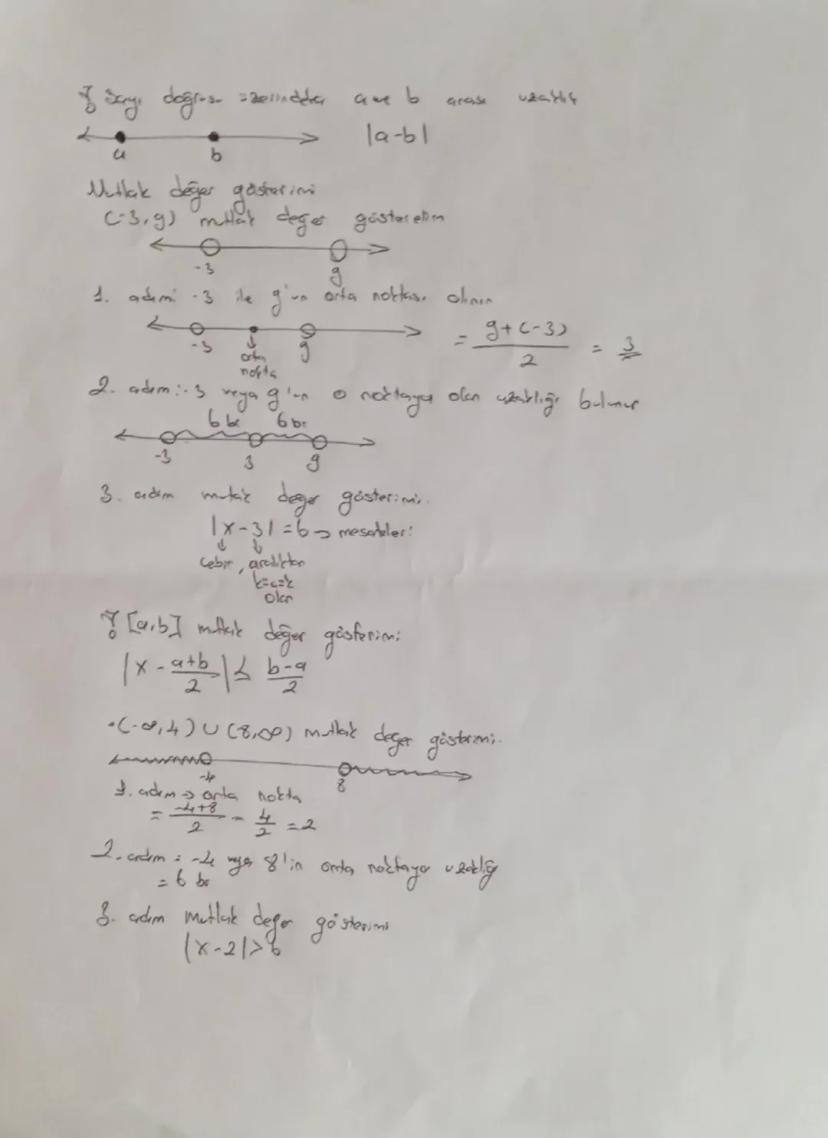 Sayı doğrusu üzerindeki a ve b arası uzaklık
a b |a-b|
Mutlak değer gösterimi
(-3,9) mutlak değer gösterelim
-3 9
1. adım: -3 ile 9'un orta noktası alınır
-3 orta nokta 9 = 9+(-3) / 2 = 3
2. adım: -3 veya 9'un o noktaya olan uzaklığı bulunur
6 br 6 br
-3 3 9
3. adım mutlak değer gösterimi.
|x-3| = 6 →
↓ ↓
aralıktan
küçük
olan
[a,b] mutlak değer gösterimi
|x - a+b / 2| ≤ b-a / 2
• (-∞,4) ∪ (8,∞) mutlak değer gösterimi.
-4 8
1. adım → orta nokta
= -4+8 / 2 - 4 / 2 = 2
2. adım = -4 veya 8'in orta noktaya uzaklığı
= 6 br
3. adım mutlak değer gösterimi
|x-2| > 6